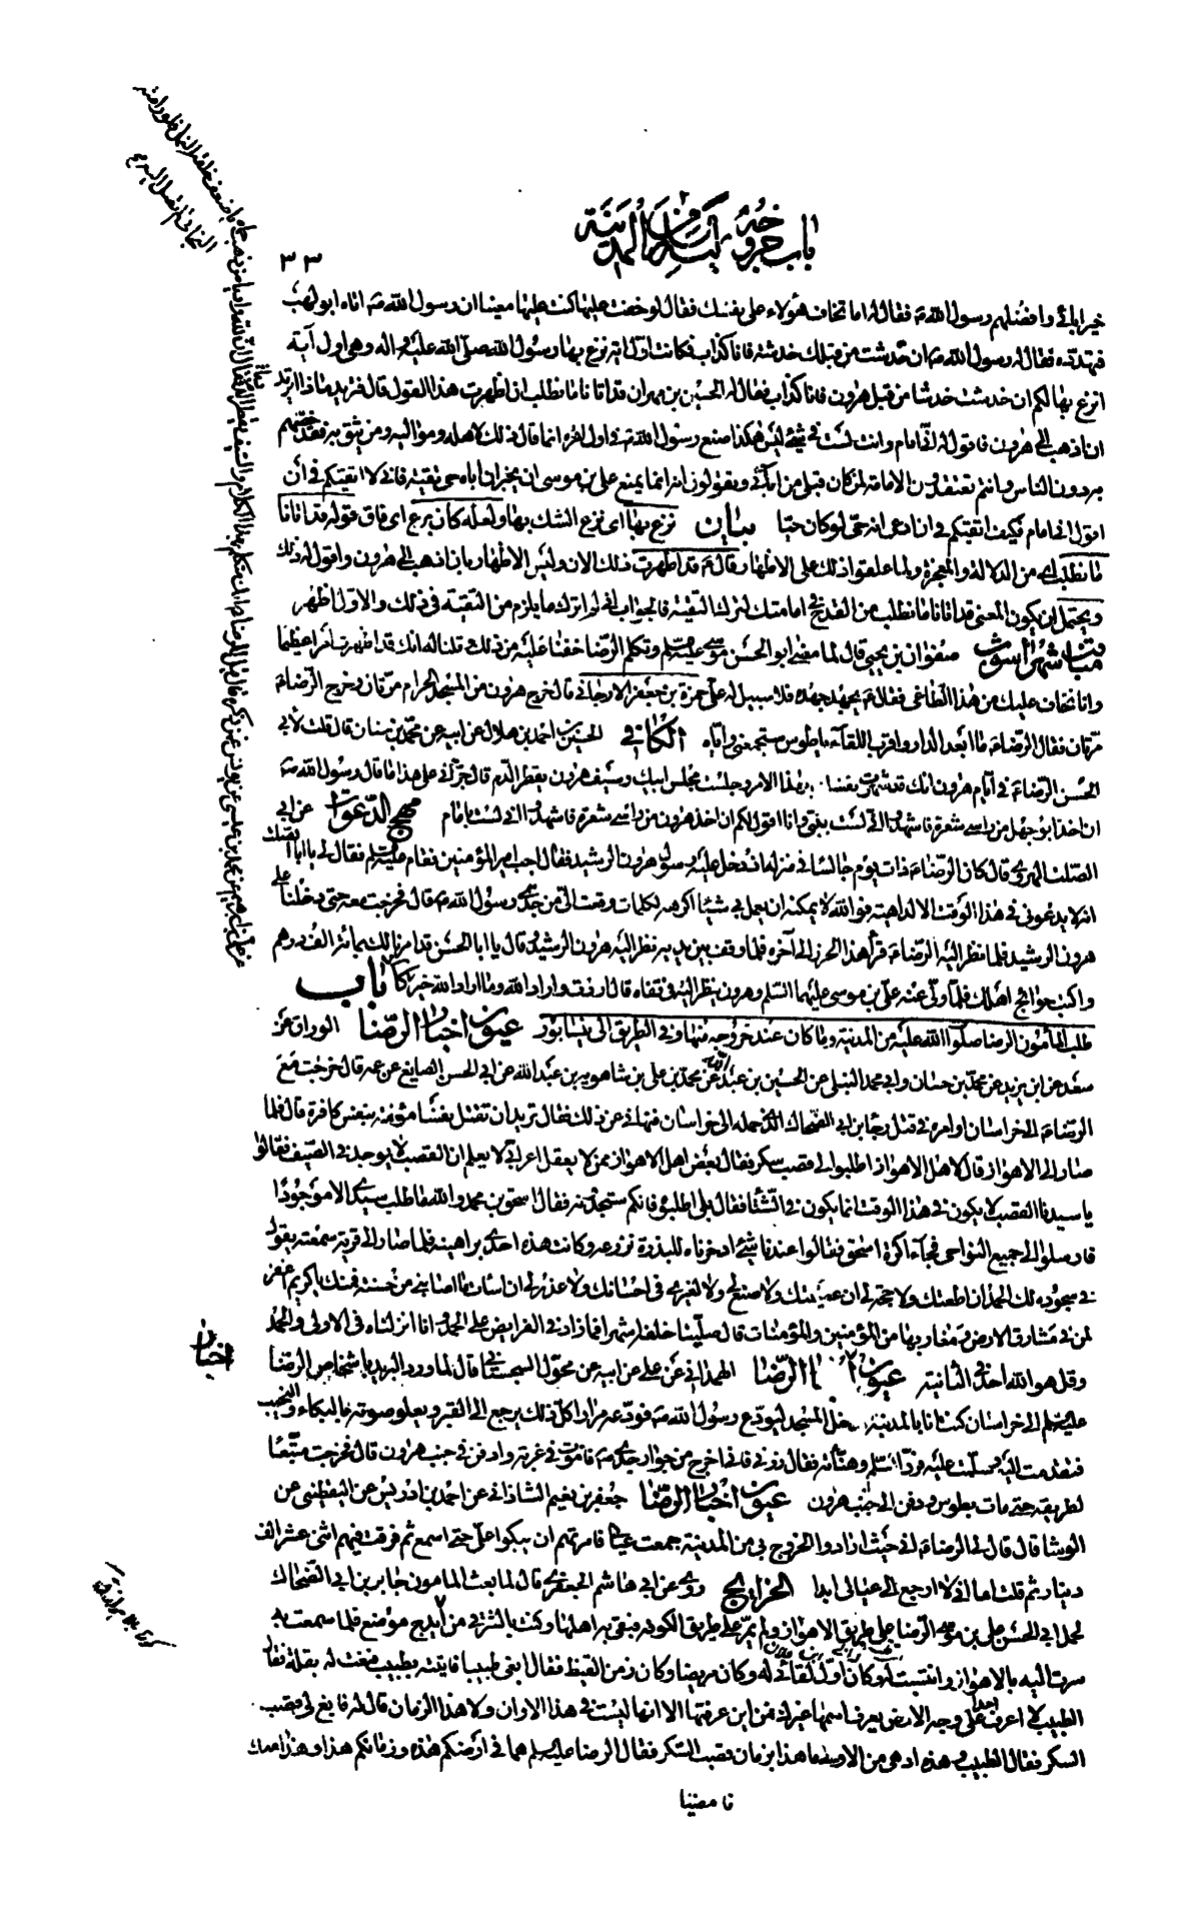 باب خروجه من المدينة
٣٣
خير ابائي وافضلهم رسول الله ص فقال له اما تخاف هؤلاء على نفسك فقال لو خفت عليها كنت عليها معينا ان رسول الله ص اتاه ابو لهب
فتهدده فقال له رسول الله ص ان خدشت من قبلك خدشة فانا كذاب فكانت اول اية نزع بها رسول الله صلى الله عليه واله وهى اول آية
انزع بها لكم ان خدشت خدشا من قبل هرون فانا كذاب فقال له الحسين بن مهران قد اتانا ما نطلب ان اظهرت هذا القول قال فتريد ماذا اتريد
ان اذهب الى هرون فاقول له انى امام وانت لست في شئ ليس هكذا صنع رسول الله ص في اول امره انما قال ذلك لاهله ومواليه ومن يثق به فقد خصهم
به دون الناس وانتم تعتقدون الامامة لمن كان قبلى من آبائى وتقولون انه انما يمنع على بن موسى ان يخبر ان اباه حى تقية فانى لا اتقيكم في أن
اقول انى امام فكيف اتقيكم في ان ادعى انه حى لو كان حيا بيان نزع بها اى نزع الشك بها ولعله كان برع اى فاق قوله قد اتانا
ما نطلب اى من الدلالة والمعجزة ولما علقوا ذلك على الاظهار قال ع قد اظهرت ذلك الان وليس الاظهار بان اذهب الى هرون واقول له ذلك
ويحتمل ان يكون المعنى قد اتانا ما نطلب من القدح في امامتك لترك التقية فالجواب انى لم اترك ما يلزم من التقية في ذلك والاول اظهر
مناقب شهراشوب صفوان بن يحيى قال لما مضى ابو الحسن موسى عليه السلم وتكلم الرضا خفنا عليه من ذلك وقلنا له انك قد اظهرت امرا عظيما
وانا نخاف عليك من هذا الطاغى فقال ع يجهد جهده فلا سبيل له على حمزة بن جعفر الارجانى قال خرج هرون من المسجد الحرام مرتان وخرج الرضا ع
مرتان فقال الرضا ع ما ابعد الدار واقرب اللقاء يا طوس ستجمعنى واياه الكافي الحسين احمد بن هلال عن ابيه عن محمد بن سنان قال قلت لابى
الحسن الرضا ع في ايام هرون انك قد شهرت نفسك بهذا الامر وجلست مجلس ابيك وسيف هرون يقطر الدم قال جرأنى على هذا ما قال رسول الله ص
ان اخذ ابو جهل من راسى شعرة فاشهدوا انى لست بنبى وانا اقول لكم ان اخذ هرون من رأسى شعرة فاشهدوا اننى لست بامام مهج الدعوات عن ابى
الصلت الهروى قال كان الرضا ع ذات يوم جالسا في منزله اذ دخل عليه رسول هرون الرشيد فقال اجب امير المؤمنين فقام عليه السلم فقال لى يا ابا الصلت
انه لا يدعونى في هذا الوقت الا لداهية فو الله لا يمكنه ان يعمل بى شيئا اكرهه لكلمات وقعت الى من جدى رسول الله ص قال فخرجت معه حتى دخلنا على
هرون الرشيد فلما نظر اليه الرضا ع قرأ هذا الحرز الى آخره فلما وقف بين يديه نظر اليه هرون الرشيد وقال يا ابا الحسن قد امرنا لك بمائة الف درهم
واكتب حوائج اهلك فلما ولى عنه على بن موسى عليهما السلم وهرون ينظر اليه في قفاه قال اردت واراد الله وما اراد الله خير باب
طلب المأمون الرضا صلوات الله عليه من المدينة وما كان عند خروجه منها وفي الطريق الى نيسابور عيون اخبار الرضا الوراق عن
سعد عن ابن يزيد عن محمد بن حسان وابى محمد النيلى عن الحسين بن عبد الله عن محمد بن على بن شاهويه بن عبد الله عن ابى الحسن الصايغ عن عمه قال خرجت مع
الرضا ع الى خراسان اوامره في قتل رجا بن ابى الضحاك الذى حمله الى خراسان فنهانى عن ذلك فقال تريد ان تقتل نفسا مؤمنة بنفس كافرة قال فلما
صار الى الاهواز قال لاهل الاهواز اطلبوا لى قصب سكر فقال بعض اهل الاهواز ممن لا يعقل اعرابى لا يعلم ان القصب لا يوجد في الصيف فقالوا
يا سيدنا القصب لا يكون في هذا الوقت انما يكون في الشتاء فقال بلى اطلبوه فانكم ستجدونه فقال اسحق بن محمد والله ما طلب سيدى الا موجودا
فارسلوا الى جميع النواحى فجاء اكرة اسحق فقالوا عندنا شئ ادخرناه للبذرة نزرعه وكانت هذه احدى براهينه فلما صار الى قرية سمعته يقول
في سجوده لك الحمد ان اطعتك ولا حجة لى ان عصيتك ولا صنع لى ولا لغيرى في احسانك ولا عذر لى ان اسأت ما اصابنى من حسنة فمنك يا كريم اغفر
لمن في مشارق الارض ومغاربها من المؤمنين والمؤمنات قال صلينا خلفه اشهرا فما زاد في الفرايض على الحمد وانا انزلناه في الاولى والحمد
وقل هو الله احد في الثانية عيون اخبار الرضا الهمدانى عن على عن ابيه عن محول السجستانى قال لما ورد البريد باشخاص الرضا
عليه السلم الى خراسان كنت انا بالمدينة فدخل المسجد ليودع رسول الله ص فودعه مرارا كل ذلك يرجع الى القبر ويعلو صوته بالبكاء والنحيب
فتقدمت اليه وسلمت عليه فرد السلم وهنأته فقال زرنى فانى اخرج من جوار جدى ص فاموت في غربة وادفن في جنب هرون قال فخرجت متبعا
لطريقه حتى مات بطوس ودفن الى جنب هرون عيون اخبار الرضا جعفر بن نعيم الشاذانى عن احمد بن ادريس عن اليقطينى عن
الوشا قال قال لى الرضا ع انى حيث ارادوا الخروج بى من المدينة جمعت عيالى فامرتهم ان يبكوا على حتى اسمع ثم فرقت فيهم اثنى عشر الف
دينار ثم قلت اما انى لا ارجع الى عيالى ابدا الخرايج روى عن ابى هاشم الجعفرى قال لما بعث المامون جابر بن ابى الضحاك
لحمل ابى الحسن على بن موسى الرضا على طريق الاهواز ولم يمر على طريق الكوفة فبقى به اهلها وكنت بالشرقى من ايدج موضع فلما سمعت به
سرت اليه بالاهواز وانتسبت له وكان اول لقائى له وكان مريضا وكان زمن القيظ فقال ابغنى طبيبا فاتيته بطبيب فنعت له بقلة فقال
الطبيب لا اعرف احدا على وجه الارض يعرف اسمها غيرك فمن اين عرفتها الا انها ليست في هذا الاوان ولا هذا الزمان قال له فابغ لى قصب
السكر فقال الطبيب وهذه ادهى من الاولى ما هذا بزمان قصب السكر فقال الرضا عليه السلم هما في ارضكم هذه وزمانكم هذا وهذا معك
فامضيا
اخبار